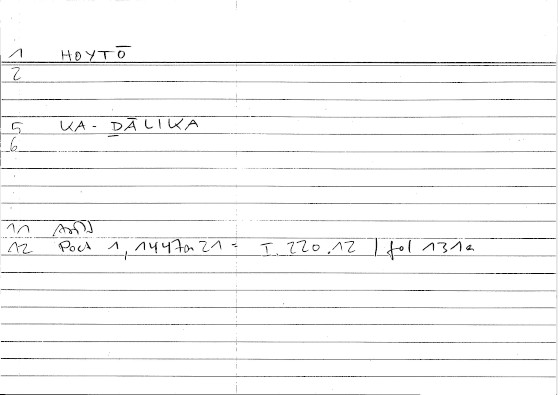 1 HOYTŌ
2
5 KA-ḎĀLIKA
6
11
12 Pock 1, 1447a21 = I.220.12 | fol 131a